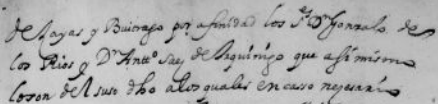 de Layas y Buitrago por afinidad los Srs Dn Gonzalo de
los Rios y Dn Antto Saez de Arquinigo que asi mismo
lo son del suso dho a los quales en caso nesesario